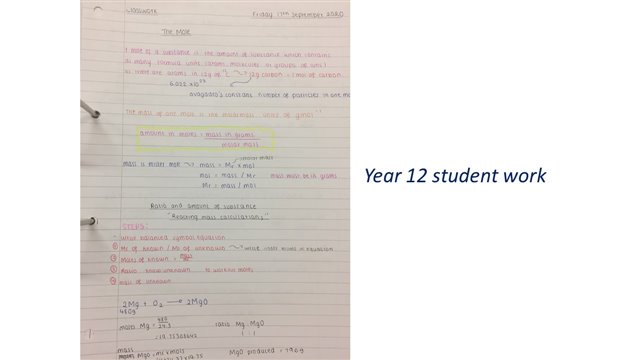 Classwork Friday 17th September 2020
The Mole
1 mole of a substance is the amount of substance which contains
as many formula units (atoms, molecules or groups of ions)
as there are atoms in 12g of 12C → 12g carbon = 1 mol of carbon.
6.022 × 10²³
avogadro's constant number of particles in one mole
The mass of one mole is the molar mass units of gmol⁻¹
amount in moles = mass in grams
molar mass
molar mass
mass is Mr × mol → mass = Mr × mol
mol = mass / Mr mass must be in grams
Mr = mass / mol
Year 12 student work
Ratio and amount of substance
"Reacting mass calculations"
STEPS:
Write balanced symbol equation
Mr of known / Mr of unknown
Moles of known = mass
Ratio known:unknown to work out moles
mass of unknown
2Mg + O₂ → 2MgO
480g
moles Mg = 480
24.3
ratio Mg : MgO
= 19.75308642 1 : 1
mass
MgO produced = 796g